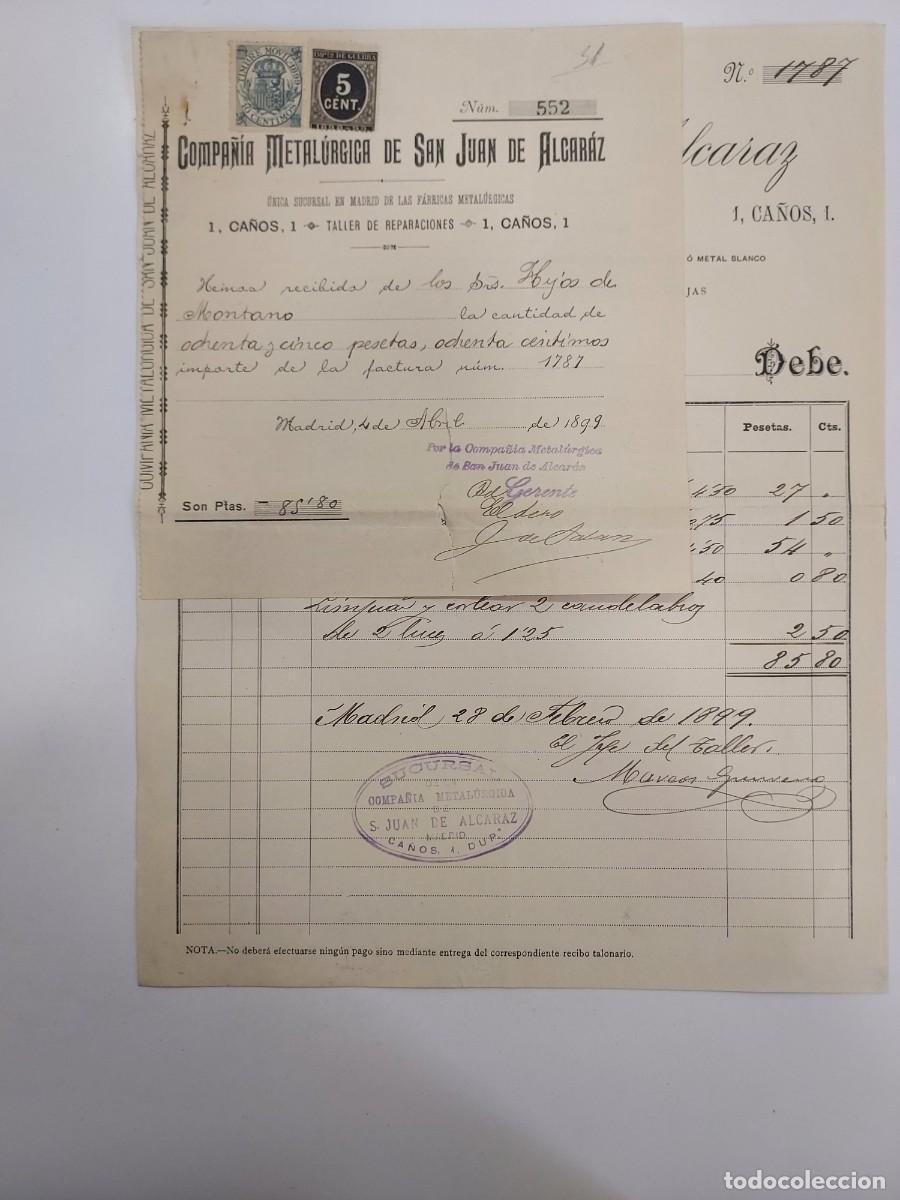 TIMBRE MOVIL 1899
10 CENTIMOS
IMPTO DE GUERRA
5
CENT.
1898-99
Núm. 552
COMPAÑÍA METALÚRGICA DE SAN JUAN DE ALCARÁZ
ÚNICA SUCURSAL EN MADRID DE LAS FÁBRICAS METALÚRGICAS
1, CAÑOS, 1 TALLER DE REPARACIONES 1, CAÑOS, 1
Hemos recibido de los Srs. Hijos de
Montano la cantidad de
ochenta y cinco pesetas, ochenta centimos
importe de la factura núm. 1787
Madrid, 4 de Abril de 1899
Por la Compañia Metalúrgica
de San Juan de Alcaráz
Gerente
Son Ptas. 85'80
COMPAÑIA METALÚRGICA DE SAN JUAN DE ALCARAZ
N.º 1787
Alcaraz
1, CAÑOS, 1.
Ó METAL BLANCO
JAS
Debe.
Pesetas. Cts.
4'50 27 "
75 1 50
4'50 54 "
40 0 80
Limpiar y cortear 2 candelabros
de 2 luces á 1'25 2 50
85 80
Madrid 28 de Febrero de 1899.
El Jefe del Taller.
Marcos
SUCURSAL
DE LA
COMPAÑIA METALÚRGICA
DE
S. JUAN DE ALCARAZ
MADRID
CAÑOS, 1, DUP.º
NOTA.—No deberá efectuarse ningún pago sino mediante entrega del correspondiente recibo talonario.
todocoleccion